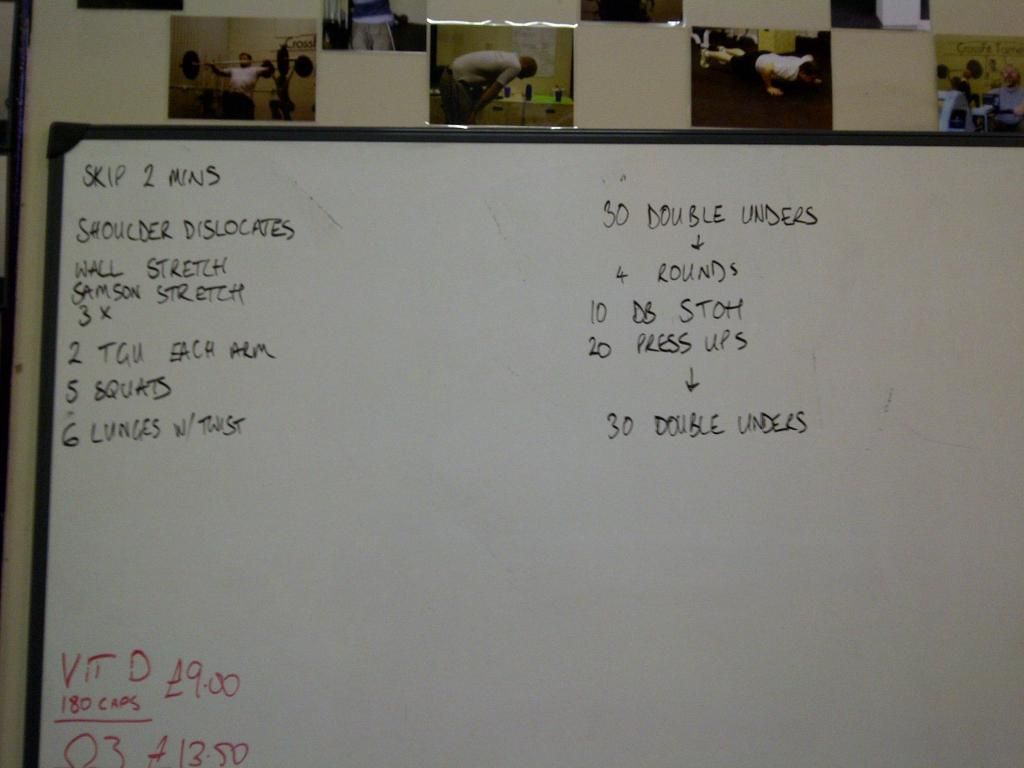 CrossFit
CrossFit Tame
SKIP 2 MINS
SHOULDER DISLOCATES
WALL STRETCH
SAMSON STRETCH
3 X
2 TGU EACH ARM
5 SQUATS
6 LUNGES W/ TWIST
30 DOUBLE UNDERS
↓
4 ROUNDS
10 DB STOH
20 PRESS UPS
↓
30 DOUBLE UNDERS
VIT D £9.00
180 CAPS
O3 £13.50